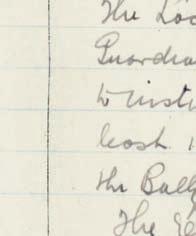 The Loc
Guardia
to instr
cost i
the Ball
The El